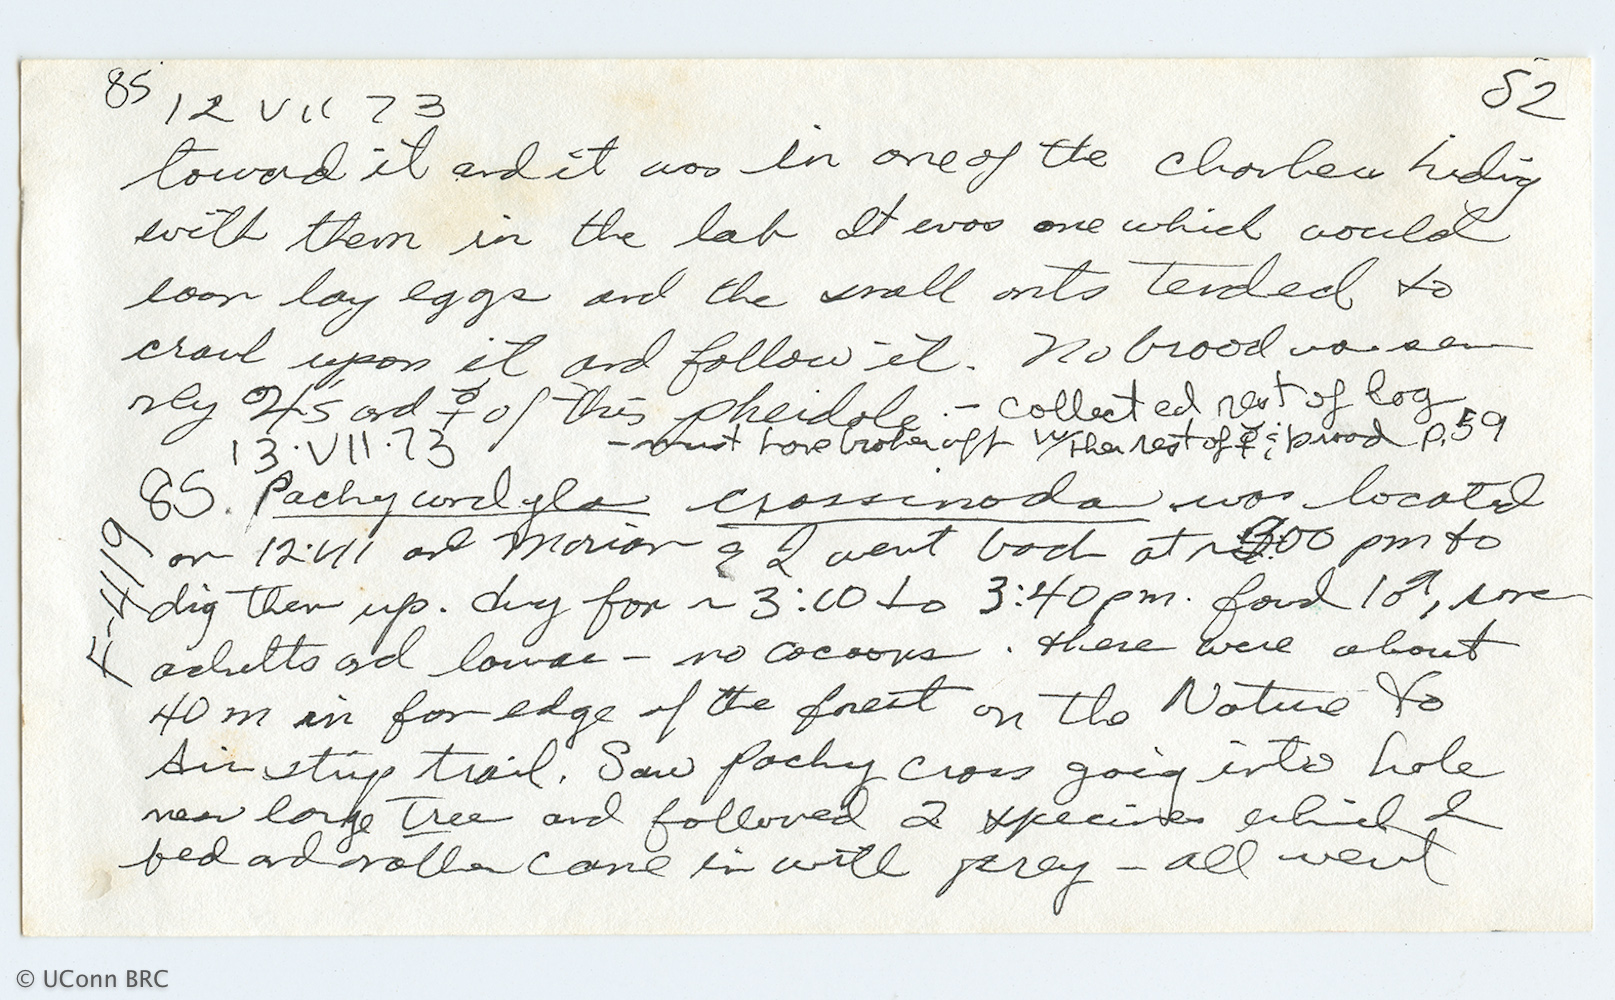 85 12 VII 73 52
toward it and it was in one of the chamber hiding
with them in the lab It was one which would
soon lay eggs and the small ants tended to
crawl upon it and follow it. No brood was seen
only 24's and ☿ of this pheidole. - collected rest of log
13·VII·73 - must have broken off w/ the rest of ☿ & brood p. 59
85. Pachycondyla crassinoda was located
on 12·VII and Marian & I went back at ~3:00 pm to
dig them up. dug for ~ 3:00 to 3:40 pm. found 1♂, some
adults and larvae - no cocoons. there were about
40 m in from edge of the forest on the Nature to
Air strip trail. Saw Pachy crass going into hole
near large tree and followed 2 specimens which I
fed and another came in with prey - all went
F-419
© UConn BRC